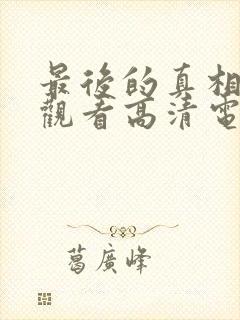 最後的真相
觀看高清電
葛廣峰